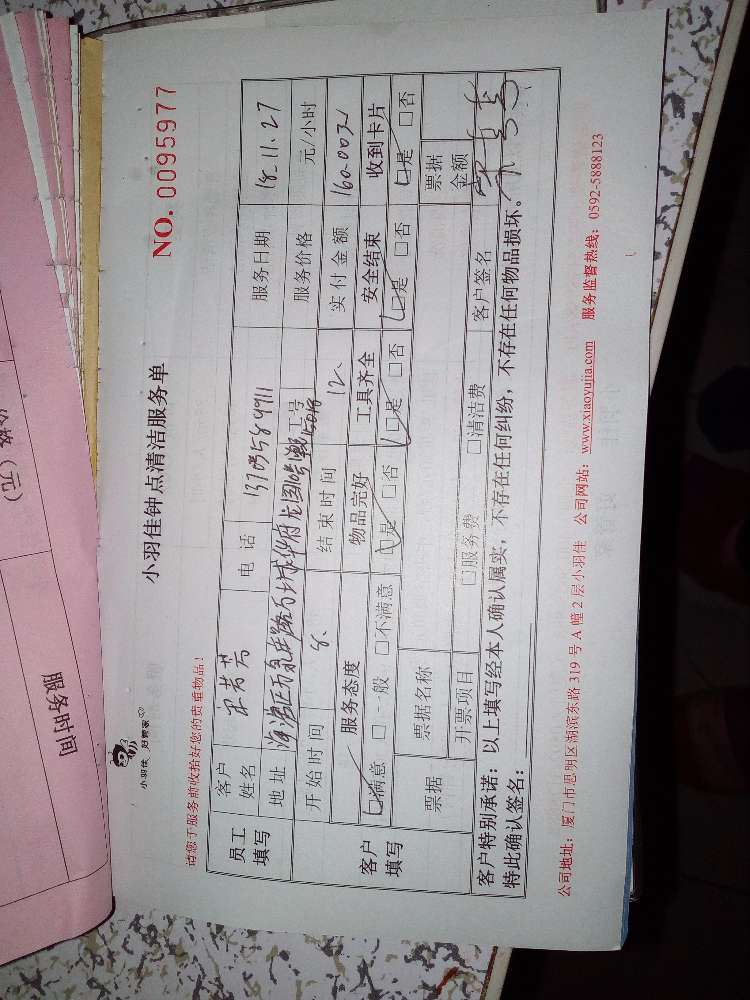 小羽佳 好管家
小羽佳钟点清洁服务单
NO. 0095977
请您于服务前收拾好您的贵重物品！
员工填写 客户姓名 电话 服务日期 18.11.27
地址 工号 服务价格 元/小时
客户填写 开始时间 8. 结束时间 12. 实付金额 160.00
服务态度 物品完好 工具齐全 安全结束 收到卡片
□满意 □一般 □不满意 □是 □否 □是 □否 □是 □否 □是 □否
票据 票据名称 票据金额
开票项目 □服务费 □清洁费 客户签名
客户特别承诺：以上填写经本人确认属实，不存在任何纠纷，不存在任何物品损坏。
特此确认签名：
公司地址：厦门市思明区湖滨东路 319 号 A 幢 2 层小羽佳 公司网站：www.xiaoyujia.com 服务监督热线：0592-5888123
服务时间
（元）